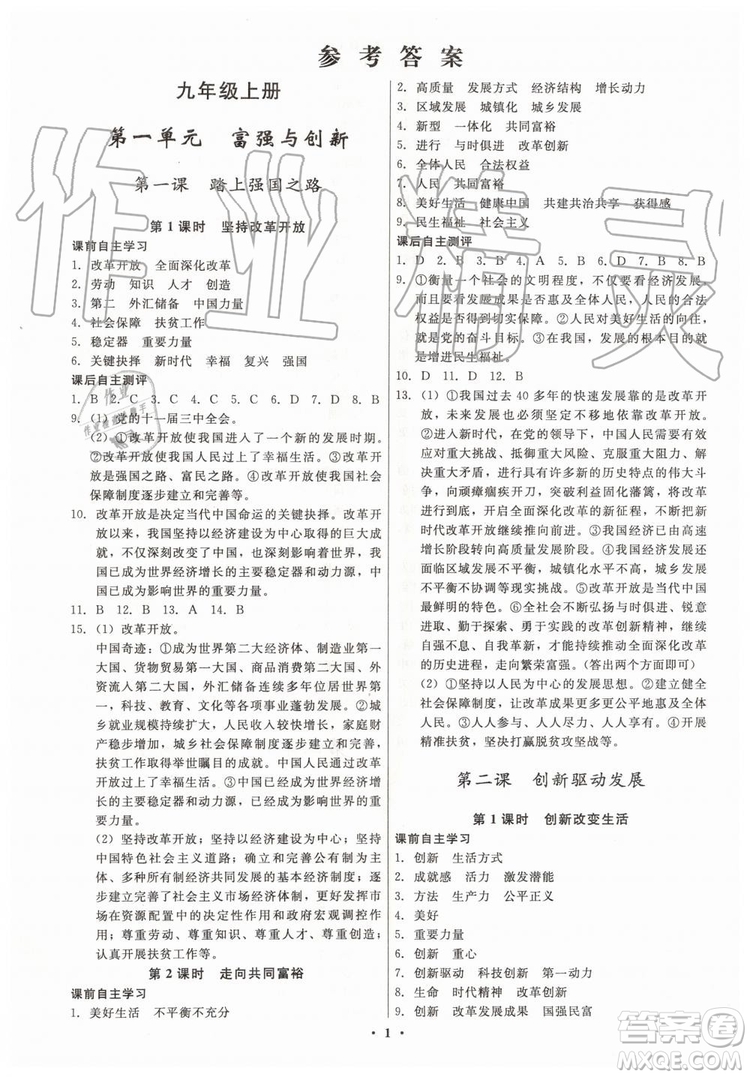 参考答案
九年级上册
第一单元　富强与创新
第一课　踏上强国之路
第1课时　坚持改革开放
课前自主学习
1. 改革开放　全面深化改革
2. 劳动　知识　人才　创造
3. 第二　外汇储备　中国力量
4. 社会保障　扶贫工作
5. 稳定器　重要力量
6. 关键抉择　新时代　幸福　复兴　强国
课后自主测评
1. B　2. C　3. C　4. C　5. C　6. D　7. C　8. B
9. (1)党的十一届三中全会。
(2)①改革开放使我国进入一个新的发展时期。
②改革开放使中国人民过上了幸福生活。③改革
开放是强国之路、富民之路。④改革开放使我国社会
保障制度逐步建立和完善等。
10. 改革开放是决定当代中国命运的关键抉择。改革开
放以来，我国坚持以经济建设为中心取得的巨大成
就，不仅深刻改变了中国，也深刻影响着世界，我
国已成为世界经济增长的主要稳定器和动力源，中
国力量推动着世界发展。
11. B　12. B　13. A　14. B
15. (1)改革开放。
中国奇迹：①成为世界第二大经济体、制造业第一
大国、货物贸易第一大国、商品消费第二大国、外
资流入第二大国，外汇储备连续多年位居世界第
一，科技、教育、文化等各项事业蓬勃发展。②城
乡就业规模持续扩大，人民收入较快增长，家庭财
产稳步增加，城乡社会保障制度逐步建立和完善，
扶贫工作取得举世瞩目的成就。③成为世界经济增长
的主要稳定器和动力源，为世界经济发展作出重大
贡献。中国人民过上了幸福生活。
(2)坚持改革开放；坚持以经济建设为中心；坚持
中国特色社会主义道路；坚持和完善我国社会主义
基本经济制度；坚持和完善分配制度；发挥市场
在资源配置中的决定性作用和政府宏观调控作用；
尊重劳动、尊重知识、尊重人才、尊重创造；
认真开展扶贫工作等。
第2课时　走向共同富裕
课前自主学习
1. 美好生活　不平衡不充分
2. 高质量　发展方式　经济结构　增长动力
3. 区域发展　城镇化　城乡发展
4. 新型　一体化　共同富裕
5. 坚持　与时俱进　改革创新
6. 全体人民　合法权益
7. 人民　共同富裕
8. 美好生活　健康中国　共建共治共享　获得感
9. 民生福祉　社会主义
课后自主测评
1. D　2. B　3. B　4. A　5. C　6. D　7. D　8. D
9. ①衡量一个社会的文明程度，不仅要看经济发展，
而且要看发展成果是否惠及全体人民，人民的合法
权益是否得到切实保障。②人民对美好生活的向往，
就是党的奋斗目标。③发展的根本目的就是增进
民生福祉。
10. D　11. A　12. D
13. (1)①我国过去40多年的快速发展靠的是改革开
放，未来发展也必须坚定不移依靠改革开放。
②新时代，在党的领导下，中国人民需要有效应对
重大挑战、抵御重大风险、克服重大阻力、
解决重大矛盾，进行具有许多新的历史特点的伟大斗
争，向顽瘴痼疾开刀，突破利益固化藩篱，将改革
进行到底。③开启全面深化改革的新征程，不断将新
时代改革开放继续推向前进。④我国经济已由高速
增长阶段转向高质量发展阶段。⑤我国经济发展还
面临区域发展不平衡、城镇化水平不高、城乡发展
不平衡不协调等现实挑战。⑥改革创新是当代中国
最鲜明的特色。⑦改革创新推动着与时俱进、锐意
进取、勤于探索、勇于实践的改革创新精神，继续
自强不息、自我革新，在不断推动全面深化改革
的历史进程，走向繁荣富强。（答出两个方面即可）
(2)①坚持以人民为中心的发展思想。②建立健全
保障制度，让改革发展成果更多更公平地惠及全体
人民。③人人参与、人人尽力、人人享有。④开展
精准扶贫，坚决打赢脱贫攻坚战等。
第二课　创新驱动发展
第1课时　创新改变生活
课前自主学习
1. 创新　生活方式
2. 成就感　激发潜能
3. 方法　生产力　公平正义
4. 美好
5. 重要力量
6. 创新　重心
7. 创新驱动　科技创新　第一动力
8. 生命　时代精神　改革创新
9. 创新　改革发展成果　国强民富
· 1 ·
作业精灵
答案圈
MXQE.COM